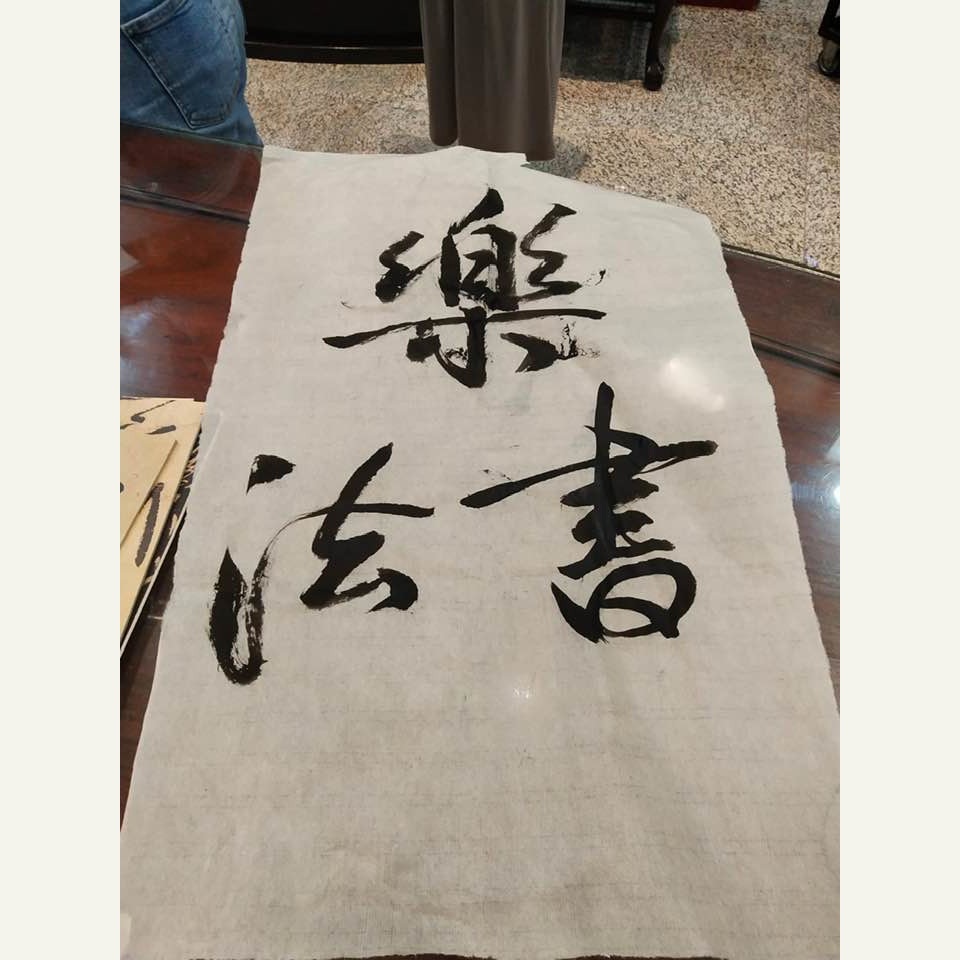 樂
書法